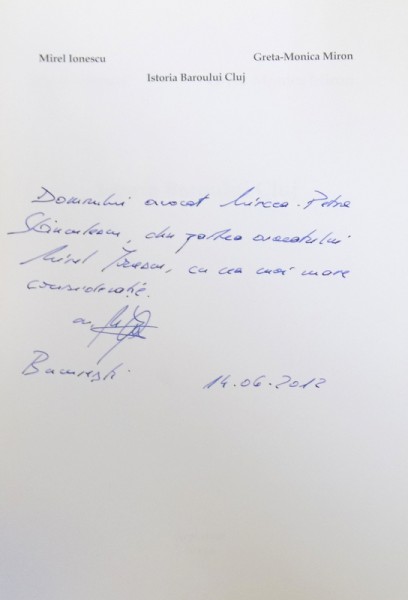 Mirel Ionescu
Greta-Monica Miron
Istoria Baroului Cluj
Domnului avocat Mircea-Petre
din partea avocatului
Mirel Ionescu, cu cea mai mare
considerație.
av.
București 14.06.2012